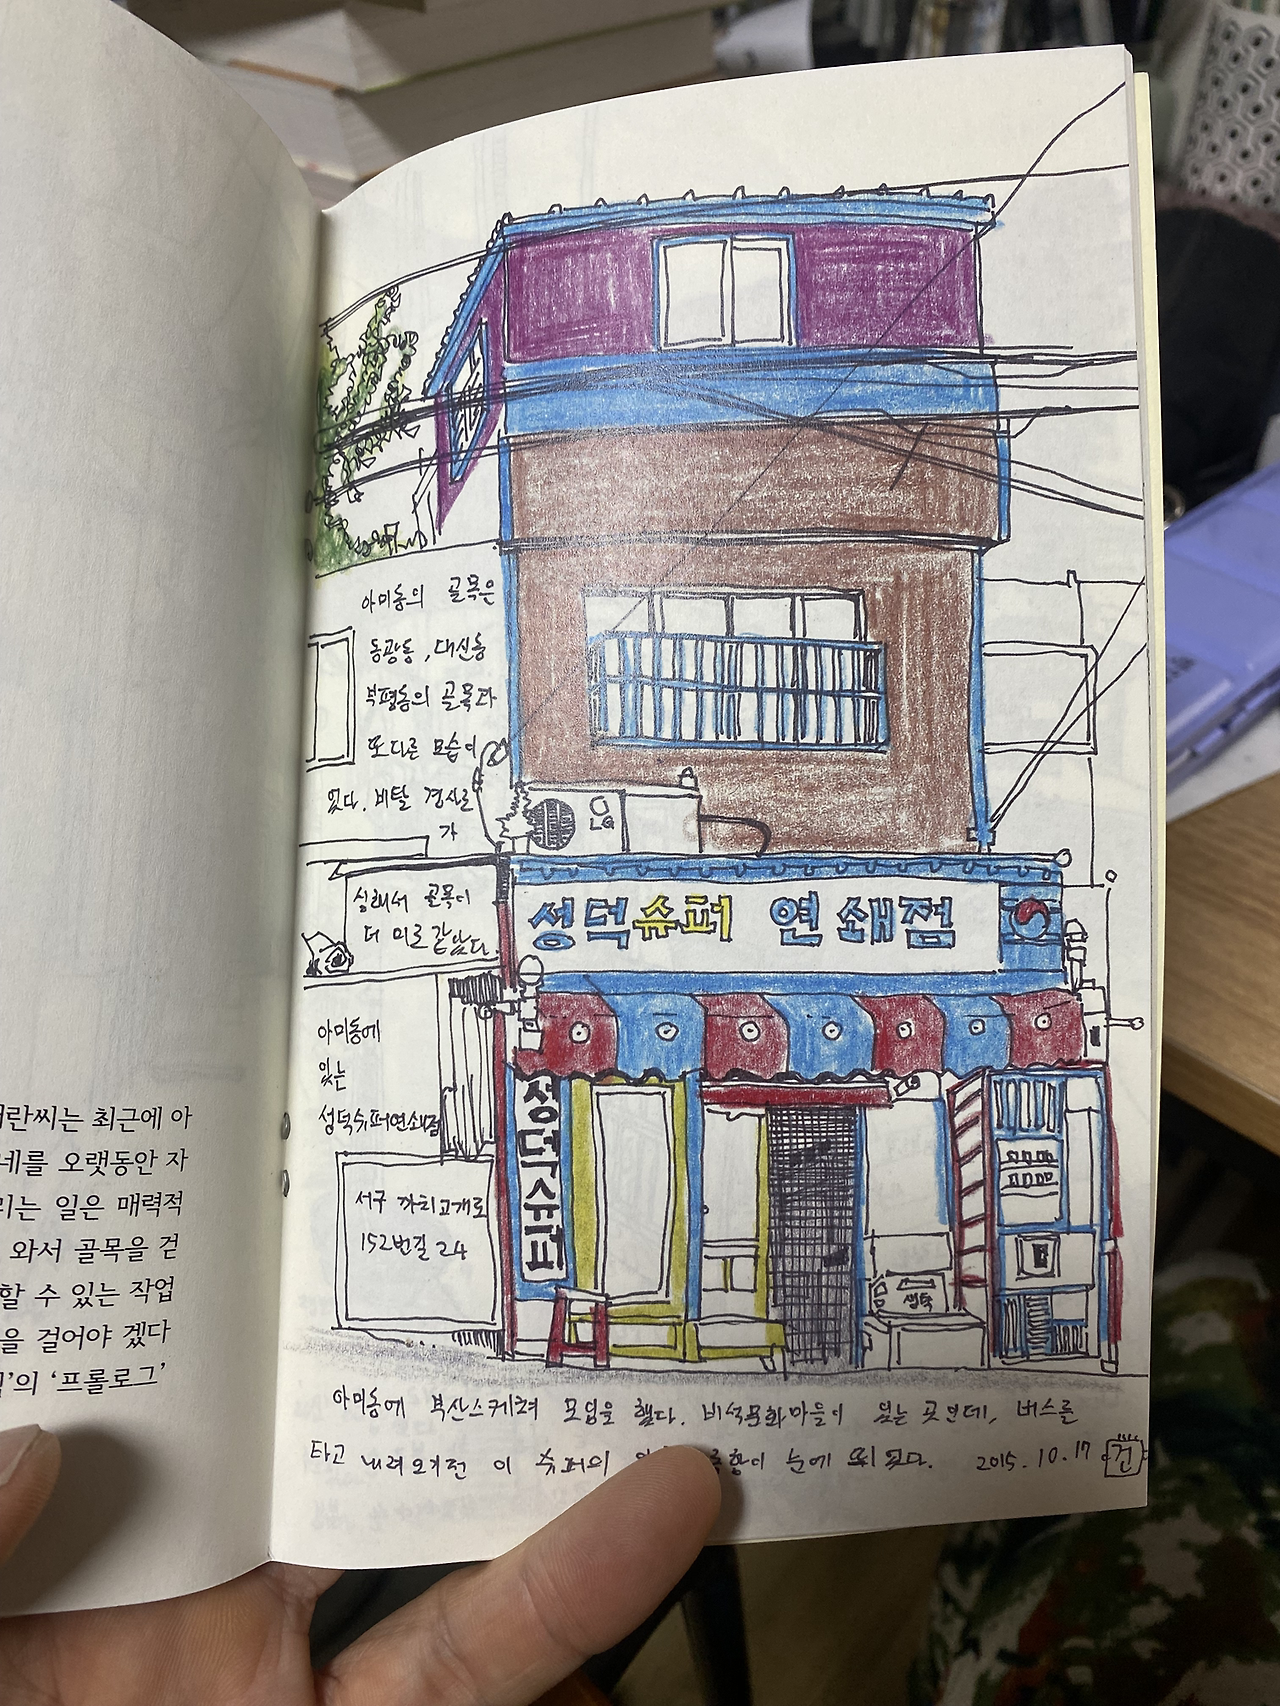 란씨는 최근에 아
네를 오랫동안 자
리는 일은 매력적
와서 골목을 걷
할 수 있는 작업
을 걸어야 겠다
의 ‘프롤로그’
아미동의 골목은
동광동, 대신동
부평동의 골목과
또다른 모습이
있다. 비탈 경사로
가
심해서 골목이
더 미로같았다.
LG
성덕슈퍼 연쇄점
아미동에
있는
성덕슈퍼연쇄점
성덕슈퍼
서구 까치고개로
152번길 24
생탁
아미동에 부산스케쳐 모임을 했다. 비석문화마을이 있는 곳인데, 버스를
타고 내려오기전 이 슈퍼의 눈에 띄었다. 2015.10.17 건